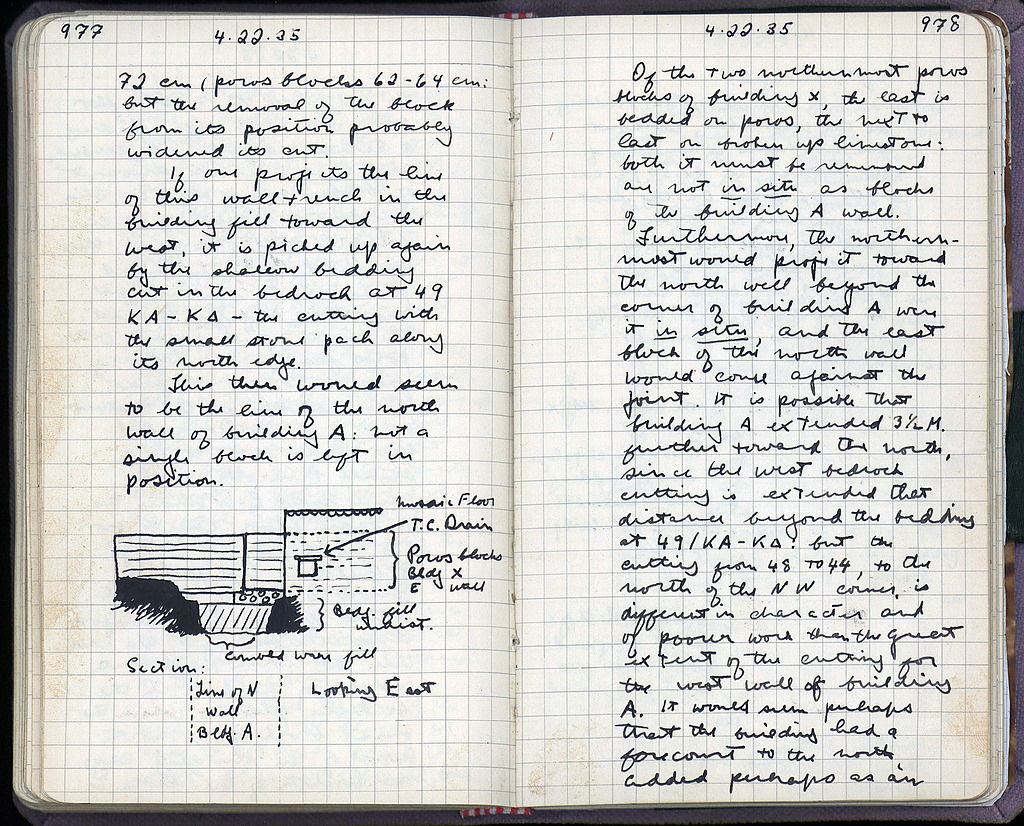 977
4.22.35
72 cm (poros blocks 62-64 cm:
but the removal of the block
from its position probably
widened its cut.
If one projects the line
of this wall trench in the
building fill toward the
west, it is picked up again
by the shallow bedding
cut in the bedrock at 49
KA-KΔ - the cutting with
the small stone pack along
its north edge.
This then would seem
to be the line of the north
wall of building A: not a
single block is left in
position.
Mosaic Floor
T.C. Drain
Poros blocks
Bldg X
E wall
Bldg. fill
undist.
fill
Section:
Line of N
Wall
Bldg. A.
Looking East
4.22.35
978
Of the two northernmost poros
blocks of building X, the last is
bedded on poros, the next to
last on broken up limestone:
both it must be remembered
are not in situ as blocks
of the building A wall.
Furthermore, the northern-
most would project toward
the north well beyond the
corner of building A were
it in situ, and the east
block of the north wall
would come against the
joint. It is possible that
building A extended 3½ M.
further toward the north,
since the west bedrock
cutting is extended that
distance beyond the bedding
at 49/KA-KΔ: but the
cutting from 48 to 44, to the
north of the NW corner, is
different in character and
of poorer work than the great
extent of the cutting for
the west wall of building
A. It would seem perhaps
that the building had a
forecourt to the north
added perhaps as an